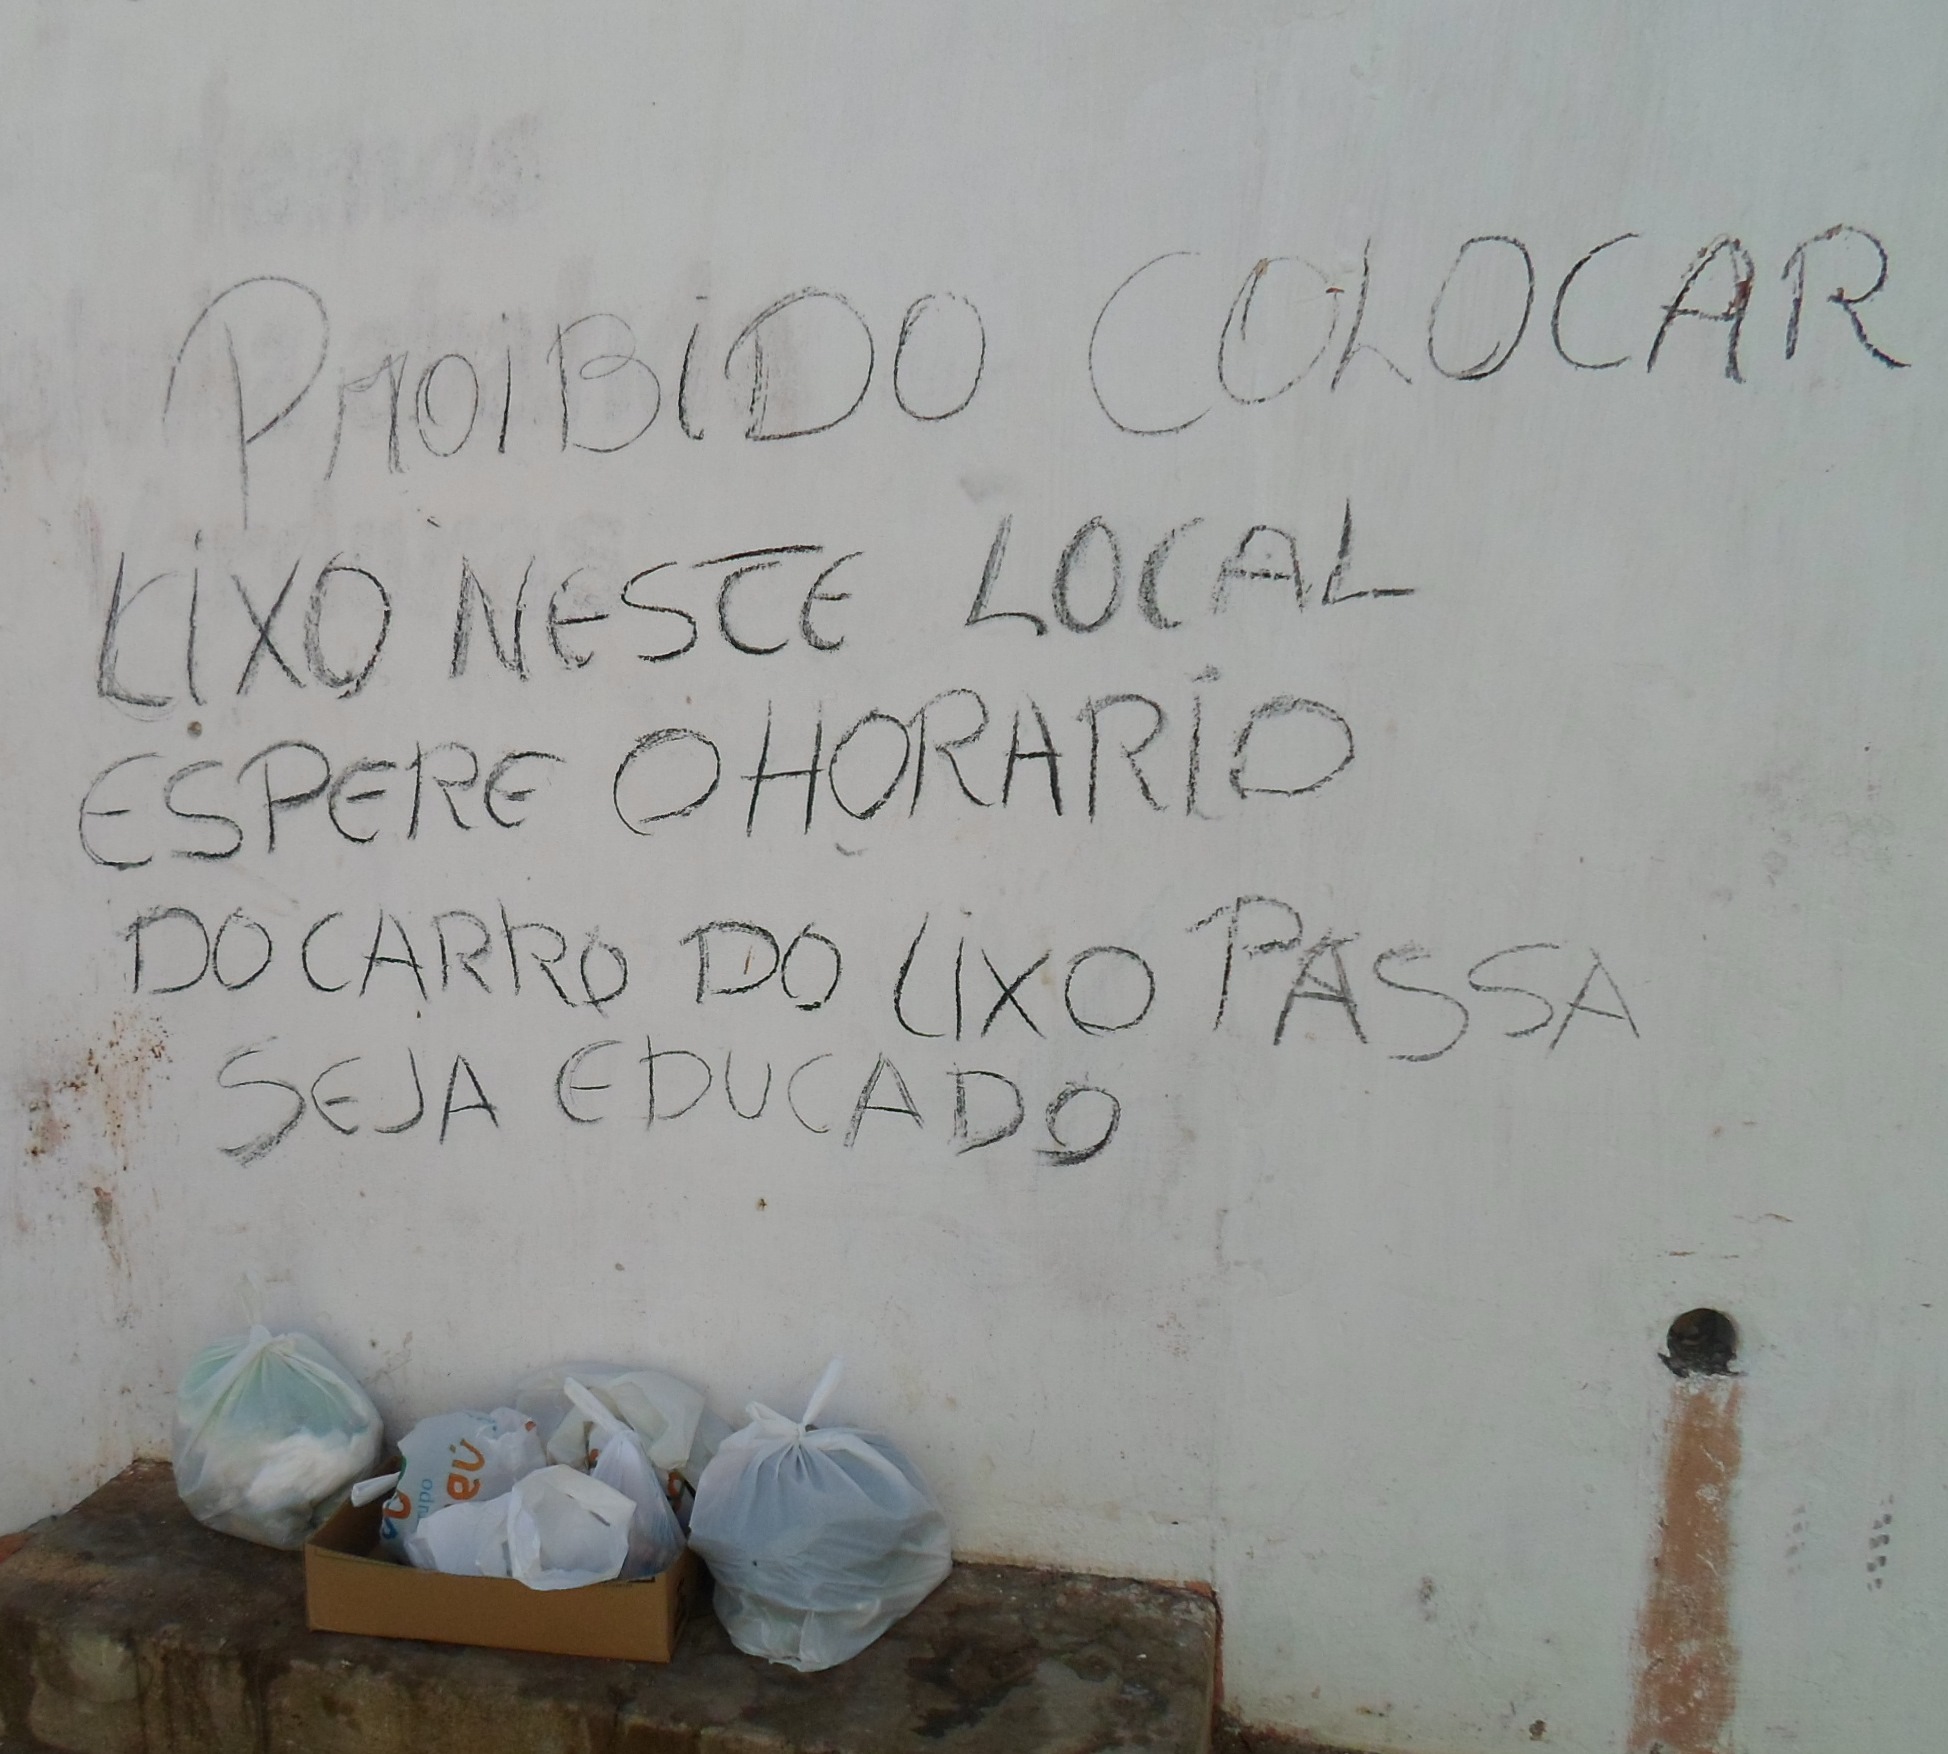 PROIBIDO COLOCAR
LIXO NESTE LOCAL
ESPERE O HORARIO
DO CARRO DO LIXO PASSA
SEJA EDUCADO